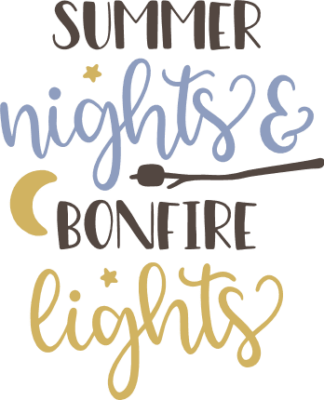 SUMMER
nights &
BONFIRE
lights